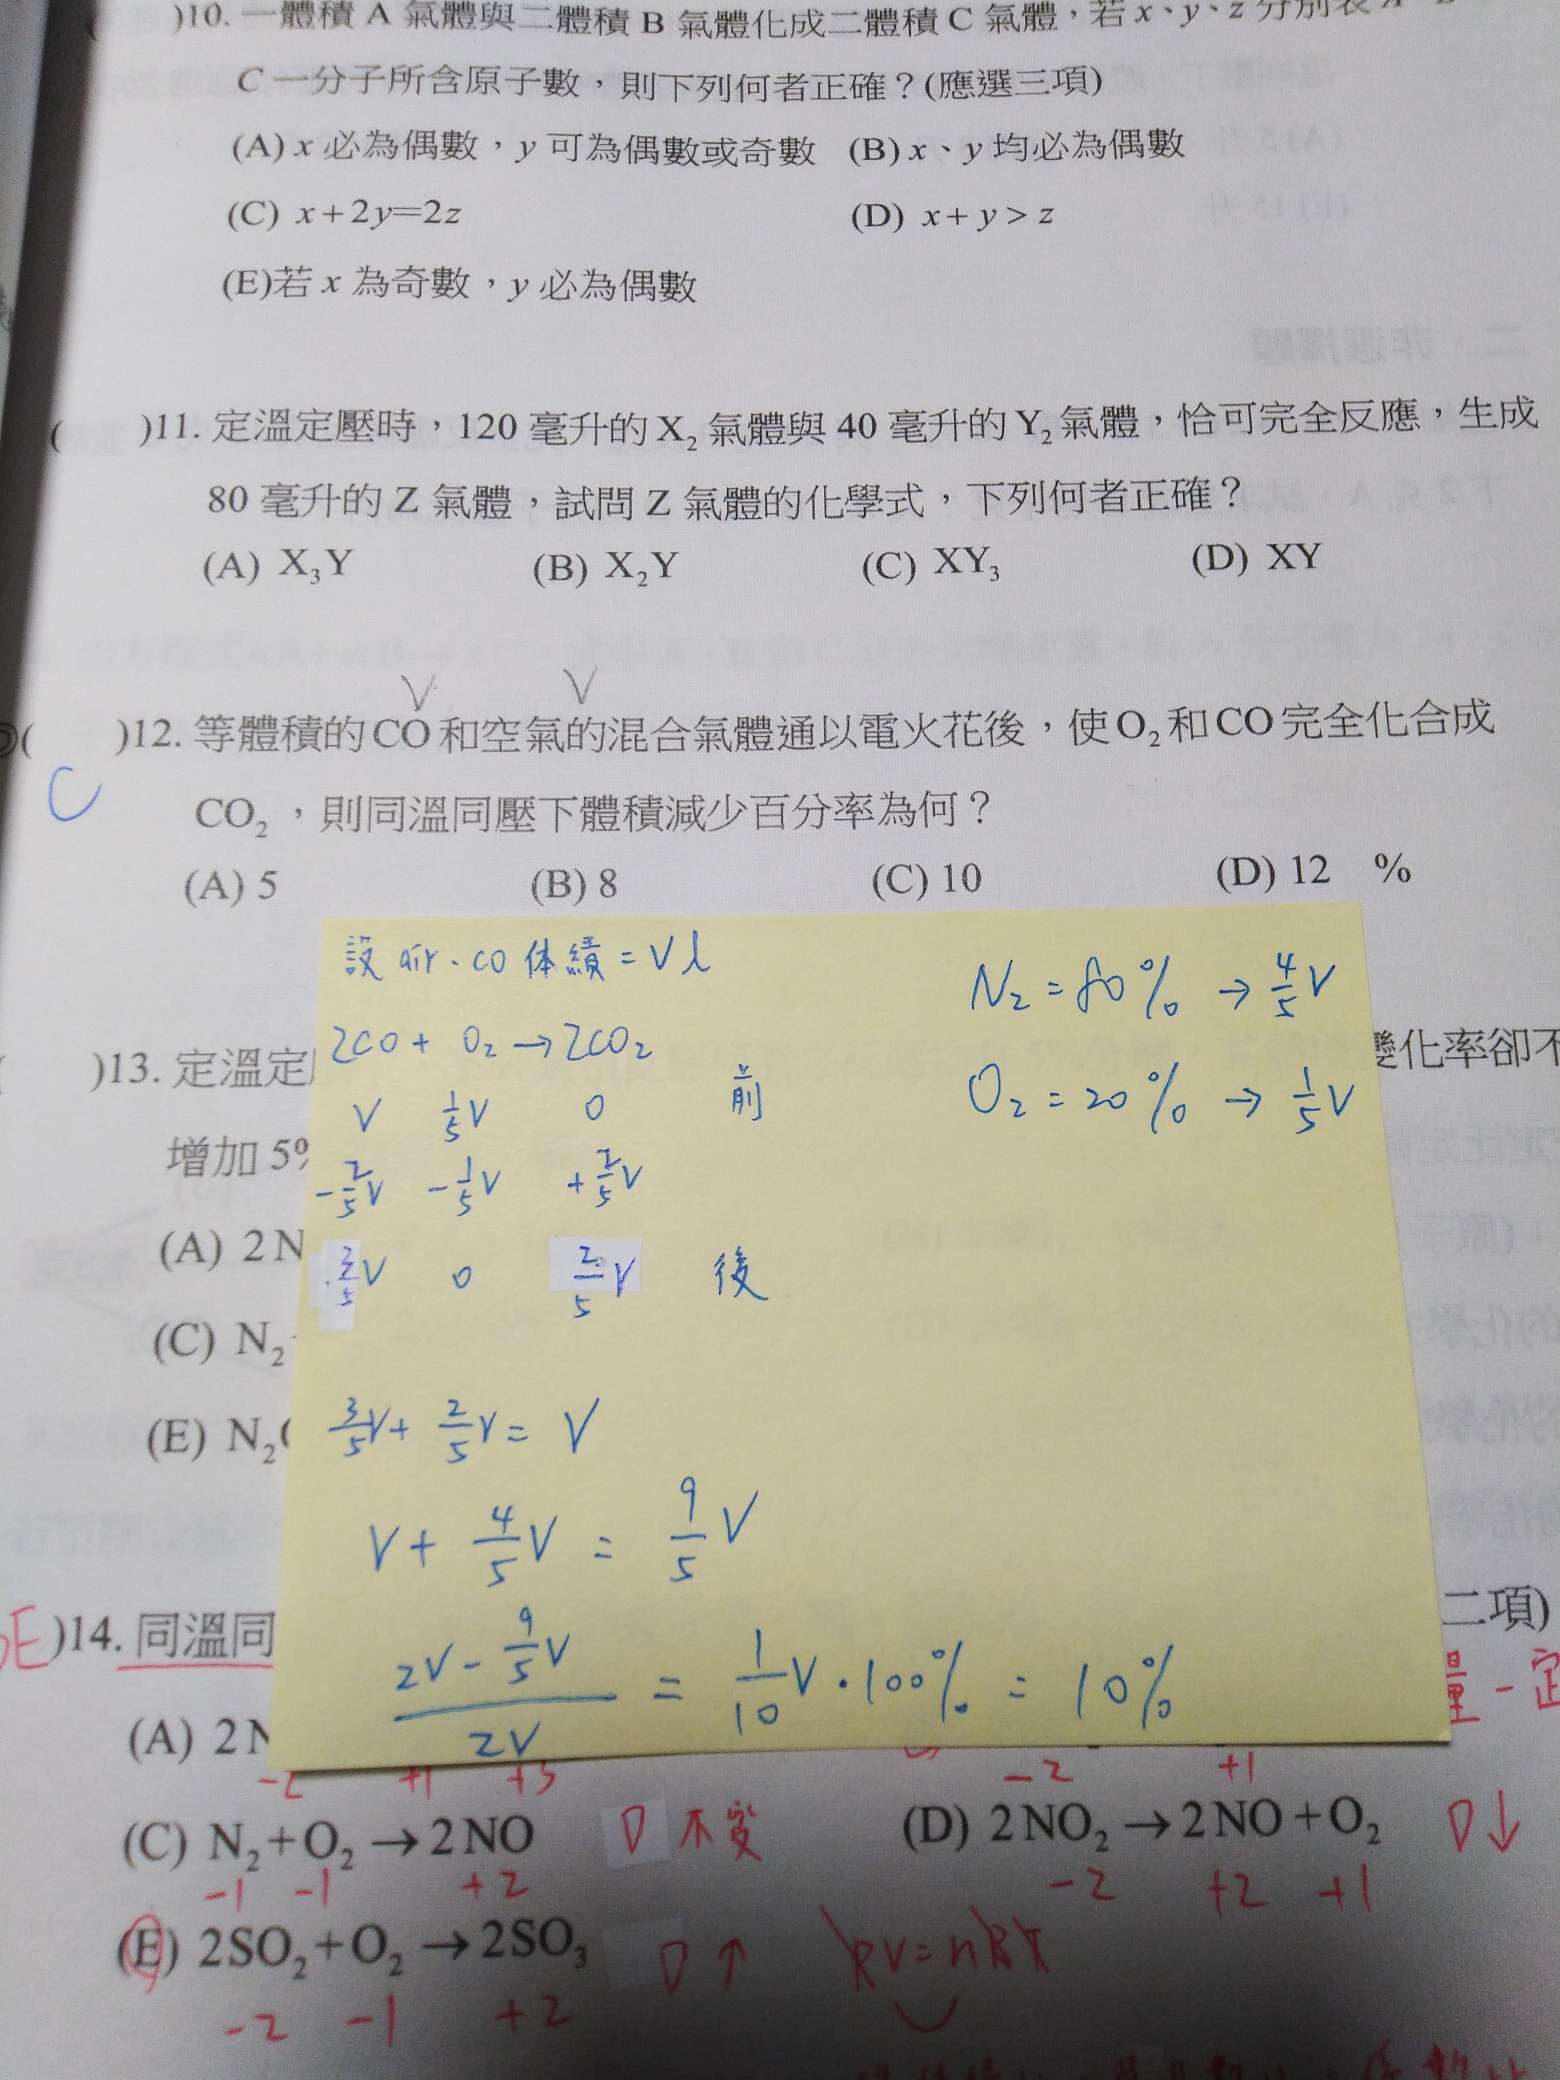 )10. 一體積 A 氣體與二體積 B 氣體化成二體積 C 氣體，若 x、y、z 分別表
C 一分子所含原子數，則下列何者正確？(應選三項)
(A) x 必為偶數，y 可為偶數或奇數 (B) x、y 均必為偶數
(C) x+2y=2z (D) x+y>z
(E)若 x 為奇數，y 必為偶數
( )11. 定溫定壓時，120 毫升的 X₂ 氣體與 40 毫升的 Y₂ 氣體，恰可完全反應，生成
80 毫升的 Z 氣體，試問 Z 氣體的化學式，下列何者正確？
(A) X₃Y (B) X₂Y (C) XY₃ (D) XY
V V
( )12. 等體積的CO和空氣的混合氣體通以電火花後，使O₂和CO完全化合成
C
CO₂，則同溫同壓下體積減少百分率為何？
(A) 5 (B) 8 (C) 10 (D) 12 %
設 air、CO 体績 = V l
N₂ = 80% → 4/5 V
2CO + O₂ → 2CO₂
O₂ = 20% → 1/5 V
V 1/5 V 0 前
-2/5 V -1/5 V +2/5 V
V 0 2/5 V 後
3/5 V + 2/5 V = V
V + 4/5 V = 9/5 V
(2V - 9/5 V)/2V = 1/10 V · 100% = 10%
)13. 定溫定 變化率卻不
增加 5%
(A) 2N
(C) N₂
(E) N₂
E )14. 同溫同 二項)
量一定
(A) 2N
-2 +1 +3 -2 +1
(C) N₂+O₂→2NO D 不变 (D) 2NO₂→2NO+O₂ D↓
-1 -1 +2 -2 +2 +1
(E) 2SO₂+O₂→2SO₃ D↑ PV=nRT
-2 -1 +2